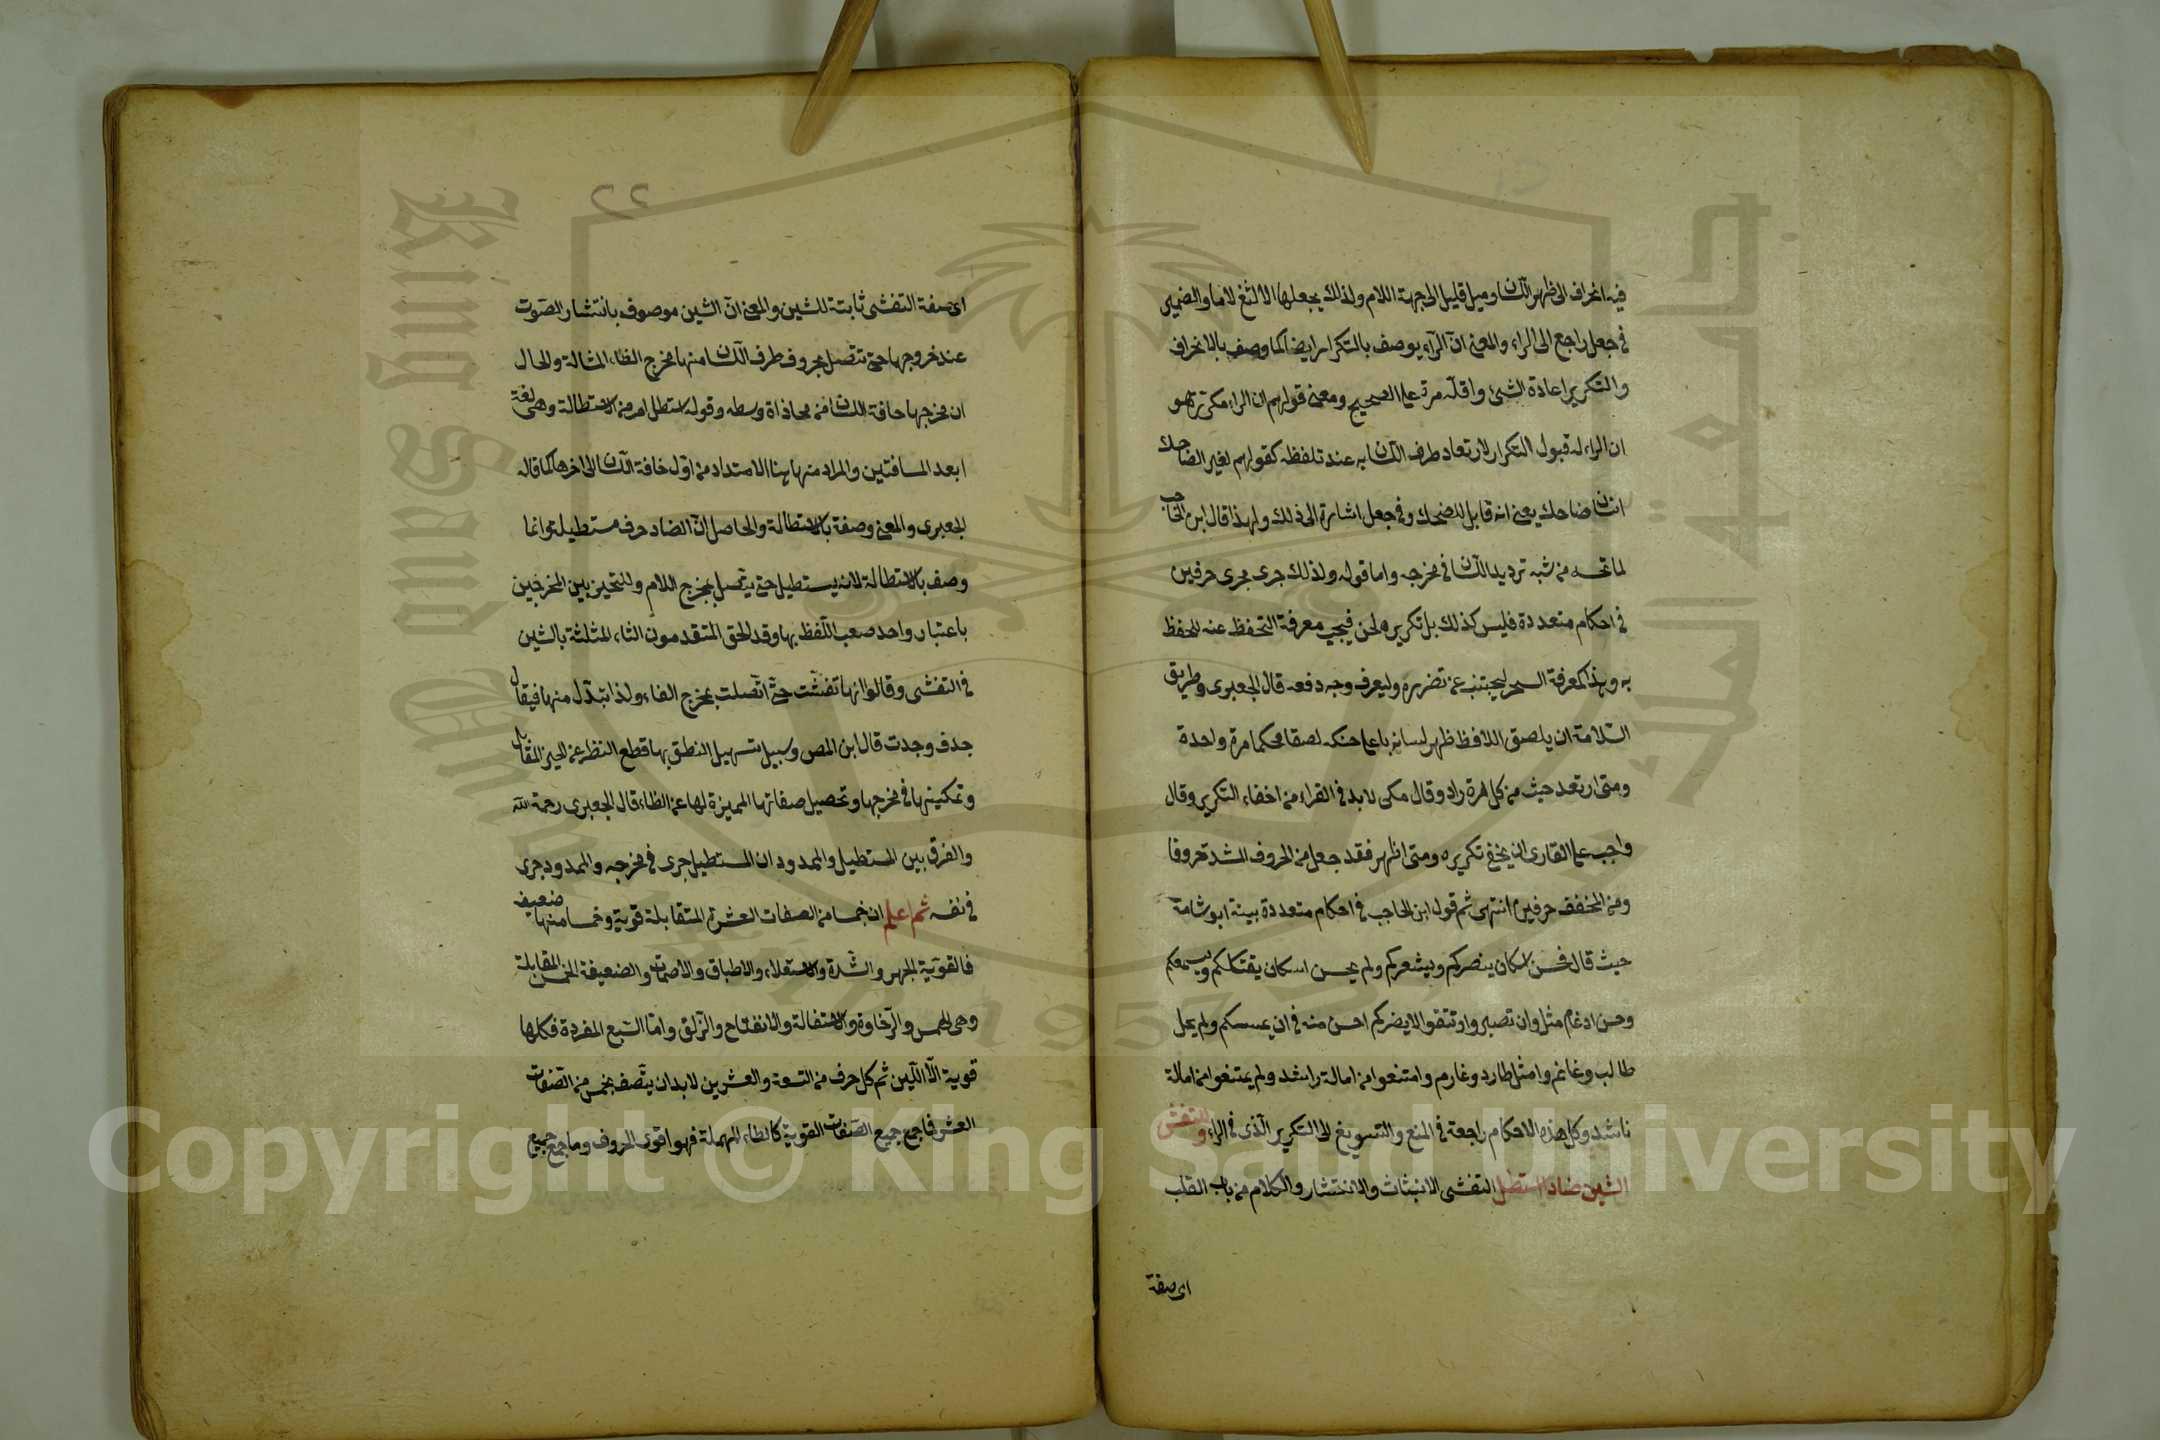 فيه انحراف الى ظهر اللسان وميل قليل الى جهة اللام ولذلك يجعلها الالثغ لاما والضمير
في جعل راجع الى الراء والمعنى ان الرآء يوصف بالتكرار ايضا كما وصف بالانحراف
والتكرير اعادة الشئ واقله مرة على الصحيح ومعنى قولهم ان الراء مكرر هو
ان الراء له قبول التكرار لارتعاد طرف اللسان به عند تلفظه كقولهم لغير الضاحك
انسان ضاحك يعنى انه قابل للضحك وفي جعل اشارة الى ذلك ولهذا قال ابن الحاجب
لما تحسه من شبه ترديد اللسان في مخرجه واما قوله ولذلك جرى مجرى حرفين
في احكام متعددة فليس كذلك بل تكريره لحن فيجب معرفة التحفظ عنه للتحفظ
به وهذا كمعرفة السحر ليجتنب عن تضرره وليعرف وجه دفعه قال الجعبرى وطريق
السّلامة ان يلصق اللافظ ظهر لسانه باعلى حنكه لصقا محكما مرة واحدة
ومتى ارتعد حدث من كل مرة راء وقال مكى لا بد في القراء من اخفاء التكرير وقال
واجب على القارى ان يخفى تكريره ومتى اظهر فقد جعل من الحروف المشدد حروفا
ومن المخفف حرفين انتهى ثم قول ابن الحاجب في احكام متعددة بينه ابو شامة
حيث قال فحسن اسكان ينصركم ويشعركم ولم يحسن اسكان يقتلكم ويسمعكم
وحسن ادغام مثل وان تصبروا وتتقوا لا يضركم احسن منه في ان يمسسكم ولم يمل
طالب وغانم وامثل طارد وغارم وامتنعوا من امالة راشد ولم يمتنعوا من امالة
ناشد وكل هذه الاحكام راجعة في المنع والتسويغ الى التكرير الّذى في الراء وللتفشى
الشين ضادا استطل التفشى الانبثاث والانتشار والكلام من باب القلب
اى صفة
٢٢
اى صفة التفشى ثابتة للشين والمعنى انّ الشين موصوف بانتشار الصّوت
عند خروجها حتى تتصل بحروف طرف اللسان منها مخرج الظاء المشالة والحال
ان مخرجها حافة اللسان من محاذاة وسطه وقوله استطل امر من الاستطالة وهى لغة
ابعد المسافتين والمراد منها هنا الامتداد من اوّل حافة اللسان الى اخرها كما قاله
الجعبرى والمعنى وصفة بالاستطالة والحاصل انّ الضاد حرف مستطيلة وانما
وصف بالاستطالة لانه يستطيل حتى يتّصل بمخرج اللام وللتحيز بين المخرجين
باعتبار واحد صعب اللّفظ بها وقد الحق المتقدمون الثاء المثلثة بالشين
في التفشى وقالوا انها تفشّت حتّى اتّصلت بمخرج الفاء ولذا تبدّل منها فيقال
جدف وجدث قال ابن المص وسبيل تسهيل النطق بها قطع النظر عن الحيز المقابل
وتمكينها في مخرجها وتحصيل صفاتها المميزة لها عن الظاء قال الجعبرى رحمة الله
والفرق بين المستطيل والممدود ان المستطيل جرى في مخرجه والممدود جرى
في نفسه ثم اعلم ان خمسا من الصفات العشرة المتقابلة قوية وخمسا منها ضعيف
فالقويّة الجهر والشّدة والاستعلاء والاطباق والاصمات والضعيفة الخمس المقابلة
وهى الهمس والرّخاوة والاستفالة والانفتاح والزّلق وامّا السّبع المفردة فكلها
قوية الّا اللّين ثم كل حرف من التسعة والعشرين لابد ان يتّصف بخمس من الصّفات
العشر فما جمع جميع الصّفات القويّة كالطاء المهملة فهو اقوى الحروف وما جمع جميع
King Saud University
جامعة الملك
1957
Copyright © King Saud University